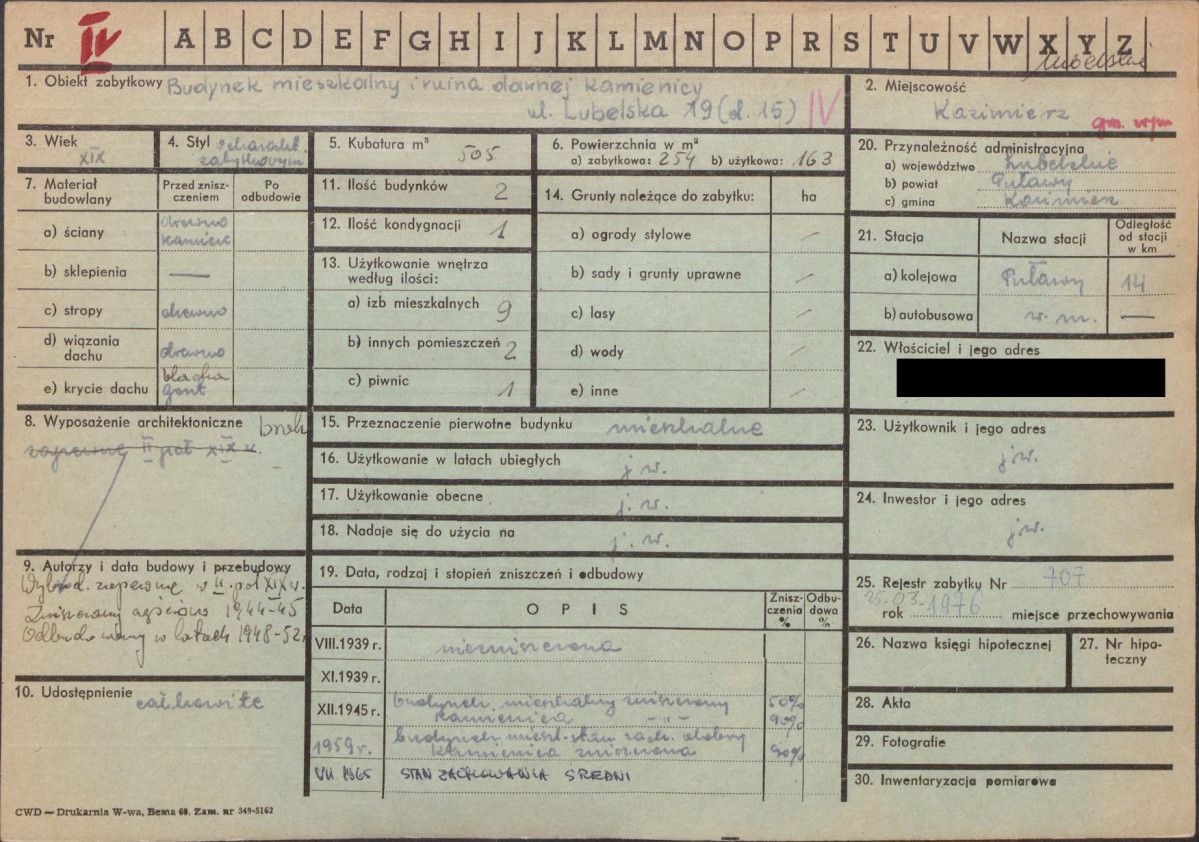 Nr IV A B C D E F G H I J K L M N O P R S T U V W X Y Z
lubelskie
1. Obiekt zabytkowy Budynek mieszkalny i ruina dawnej kamienicy
ul. Lubelska 19 (d. 15) IV
2. Miejscowość
Kazimierz
gm. wym
3. Wiek
XIX
4. Styl o charakt.
zabytkowym
5. Kubatura m³ 505
6. Powierzchnia w m²
a) zabytkowa: 254 b) użytkowa: 163
20. Przynależność administracyjna
a) województwo Lubelskie
b) powiat Puławy
c) gmina Kazimierz
7. Materiał budowlany
Przed zniszczeniem
Po odbudowie
a) ściany drewno
kamień
b) sklepienia —
c) stropy drewno
d) wiązania dachu drewno
e) krycie dachu blacha
gont
11. Ilość budynków 2
12. Ilość kondygnacji 1
13. Użytkowanie wnętrza
według ilości:
a) izb mieszkalnych 9
b) innych pomieszczeń 2
c) piwnic 1
14. Grunty należące do zabytku: ha
a) ogrody stylowe /
b) sady i grunty uprawne /
c) lasy /
d) wody /
e) inne /
21. Stacja Nazwa stacji Odległość
od stacji
w km
a) kolejowa Puławy 14
b) autobusowa w. m. —
22. Właściciel i jego adres
8. Wyposażenie architektoniczne brak
zapewne II poł XIX w.
15. Przeznaczenie pierwotne budynku mieszkalne
16. Użytkowanie w latach ubiegłych j. w.
17. Użytkowanie obecne j. w.
18. Nadaje się do użycia na j. w.
23. Użytkownik i jego adres
j w.
24. Inwestor i jego adres
j w.
9. Autorzy i data budowy i przebudowy
Wybud. zapewne w II. poł XIX w.
Zniszczony częściowo 1944-45
Odbudowany w latach 1948-52r
10. Udostępnienie całkowite
19. Data, rodzaj i stopień zniszczeń i odbudowy
Data OPIS Zniszczenia % Odbudowa %
VIII.1939 r. niezniszczona
XI.1939 r.
XII.1945 r. budynek mieszkalny zniszczony 50%
kamienica -"- 90%
1959 r. budynek mieszk. stan zach. dobry
kamienica zniszczona 90%
VII 1965 STAN ZACHOWANIA ŚREDNI
25. Rejestr zabytku Nr 707
25.03.
rok 1976 miejsce przechowywania
26. Nazwa księgi hipotecznej
27. Nr hipoteczny
28. Akta
29. Fotografie
30. Inwentaryzacja pomiarowa
CWD — Drukarnia W-wa, Bema 60. Zam. nr 349-5162